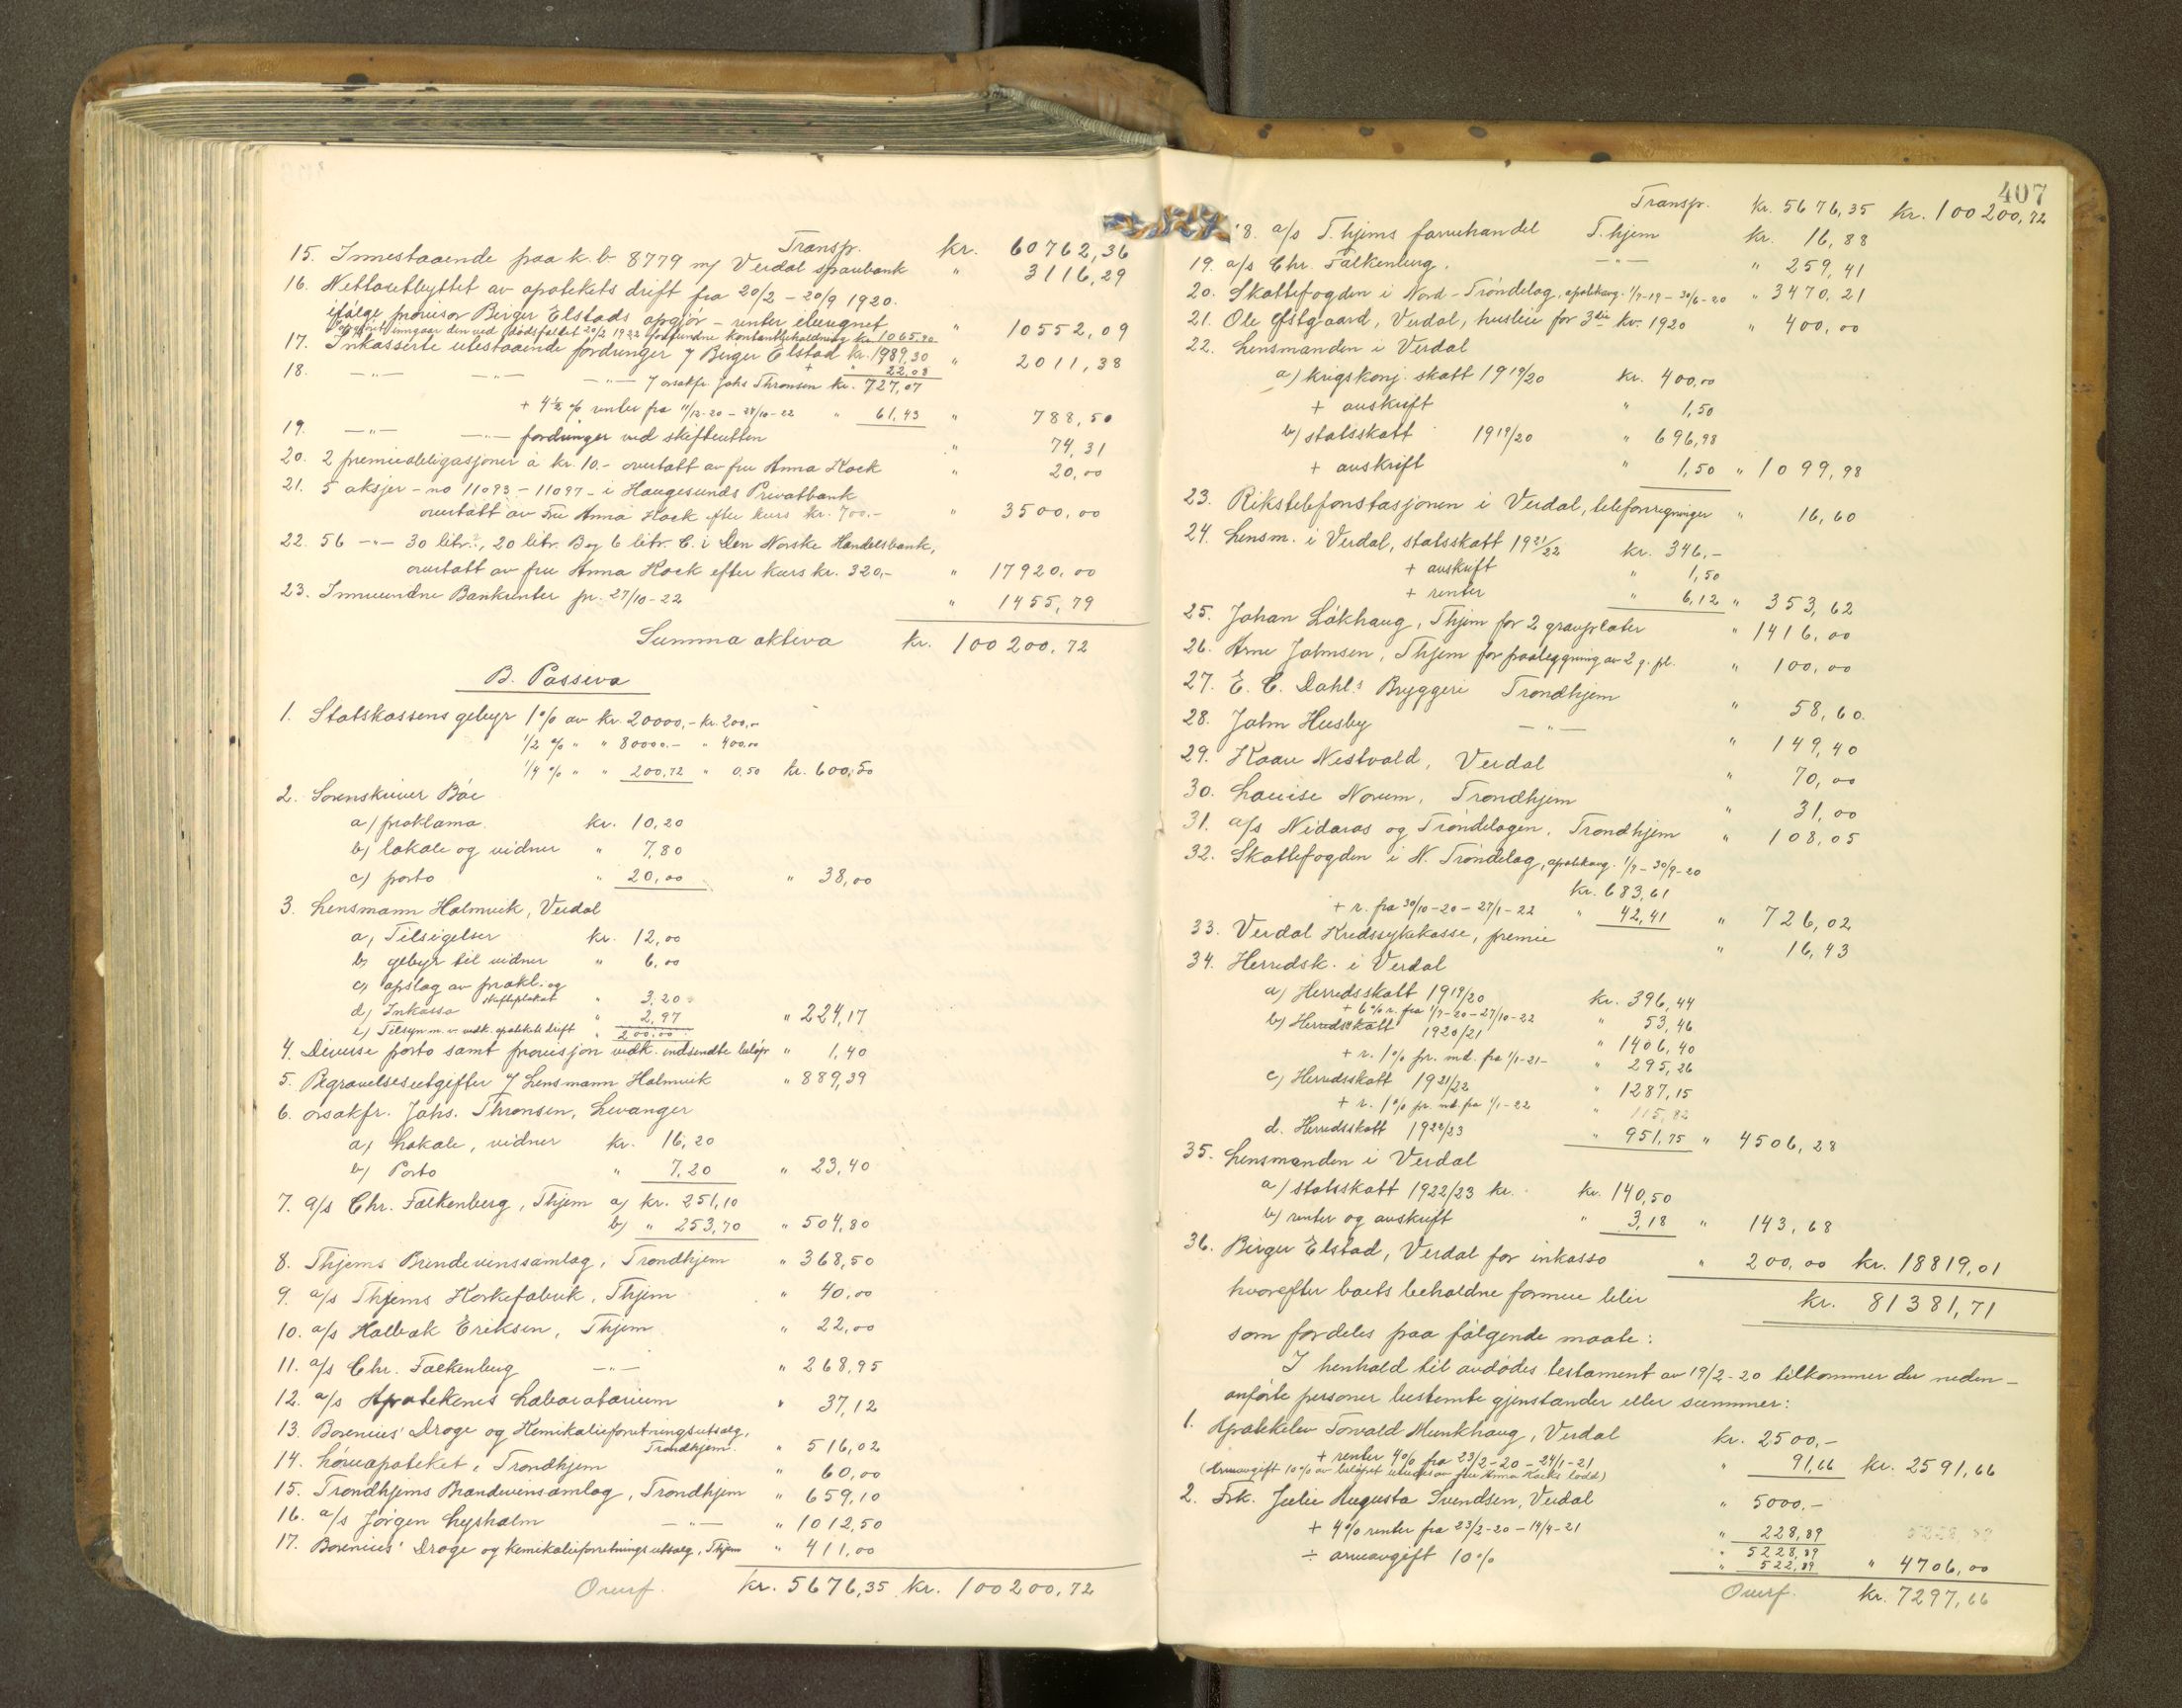 Transp. kr. 60762,36
15. Innestaaende paa k. b. 8779 m/ Verdal sparebank " 3116,29
16. Nettoutbyttet av apotekets drift fra 20/2 - 20/9 1920.
ifølge provisor Birger Elstads opgjør - renter iberegnet " 10552,09
I opgjøret inngaar den ved dødsfaldet 20/2 1922 forefundne kontantbeholdning kr. 1065.90
17. Inkasserte utestaaende fordringer v/ Birger Elstad kr. 1989,30
+ " 22,08 " 2011,38
18. -"- -"- -"- v/ orsakfr. Johs Thronsen kr. 727,07
+ 4½ % renter fra 11/12-20 - 28/10-22 " 61,43 " 788,50
19. -"- -"- fordringer ved skifteretten " 74,31
20. 2 premieobligasjoner à kr. 10.- overtatt av fru Anna Kock " 20,00
21. 5 aksjer - no 11093 - 11097 - i Haugesunds Privatbank
overtatt av Fru Anna Kock efter kurs kr. 700.- " 3500,00
22. 56 -"- 30 litr. , 20 litr. B og 6 litr. C. i Den Norske Handelsbank,
overtatt av fru Anna Kock efter kurs kr. 320,- " 17920,00
23. Innvundne Bankrenter pr. 27/10-22 " 1455,79
Summa aktiva kr. 100200,72
B. Passiva
1. Statskassens gebyr 1% av kr. 20000,- kr. 200,-
1/2 % " " 80000.- " 400.00
1/4 % " " 200,72 " 0,50 kr. 600,50
2. Sorenskriver Bøe
a) proklama kr. 10,20
b) lokale og vidner " 7,80
c) porto " 20,00 " 38,00
3. Lensmann Holmvik, Verdal
a, Tilsigelser kr. 12,00
b, gebyr til vidner " 6,00
c, opslag av prokl. og
skifteplakat " 3,20
d, Inkasso " 2,97
e) Tilsyn m. v. vedk. apotekets drift " 200.00 " 224,17
4. Diverse porto samt provisjon vedk. indsendte beløp " 1,40
5. Begravelsesutgifter v/ Lensmann Holmvik " 889,39
6. orsakfr. Johs. Thronsen, Levanger
a, Lokale, vidner kr. 16,20
b, Porto " 7,20 " 23,40
7. a/s Chr. Falkenberg, Thjem a) kr. 251,10
b) " 253,70 " 504,80
8. Thjems Brendevinssamlag, Trondhjem " 368,50
9. a/s Thjems Korkefabrik, Thjem " 40,00
10. a/s Holbæk Eriksen, Thjem " 22,00
11. a/s Chr. Falkenberg -"- " 268,95
12. a/s Apotekenes Laboratorium " 37,12
13. Borenius' Droge og Kemikalieforretningsutsalg,
Trondhjem " 516,02
14. Løveapoteket, Trondhjem " 60,00
15. Trondhjems Brandevinsamlag, Trondhjem " 659,10
16. a/s Jørgen Lysholm -"- " 1012,50
17. Borenius' Droge og kemikalieforretningsutsalg, Thjem " 411,00
Overf. kr. 5676,35 kr. 100200,72
407
Transp. kr. 5676,35 kr. 100200,72
18. a/s T.hjems farvehandel T.hjem kr. 16,88
19. a/s Chr. Falkenberg. -"- " 259,41
20. Skattefogden i Nord-Trøndelag, apotekavg. 1/7-19 - 30/6-20 " 3470,21
21. Ole Østgaard, Verdal, husleie for 3die kv. 1920 " 400,00
22. Lensmanden i Verdal
a) krigskonj. skatt 1919/20 kr. 400,00
+ avskrift " 1,50
b) statsskatt 1919/20 " 696,98
+ avskrift " 1,50 " 1099,98
23. Rikstelefonstasjonen i Verdal, telefonregninger " 16,60
24. Lensm. i Verdal, statsskatt 1921/22 kr. 346,-
+ avskrift " 1,50
+ renter " 6,12 " 353,62
25. Johan Løkhaug, Thjem for 2 gravplater " 1416,00
26. Arne Johnsen, Thjem for paaleggning av 2 g. pl. " 100,00
27. E. C. Dahls Bryggeri Trondhjem " 58,60
28. John Husby -"- " 149,40
29. Kaare Nestvold, Verdal " 70,00
30. Louise Norum, Trondhjem " 31,00
31. a/s Nidaros og Trøndelagen, Trondhjem " 108,05
32. Skattefogden i N. Trøndelag, apotekavg. 1/7 - 30/9-20
kr. 683,61
+ r. fra 30/10-20 - 27/1-22 " 42,41 " 726,02
33. Verdal Kredssykekasse, premie " 16,43
34. Herredsk. i Verdal
a) Herredsskatt 1919/20 kr. 396,44
+ 6% r. fra 1/7-20 - 27/10-22 " 53,46
b) Herredsskatt 1920/21 " 1406,40
+ r. 1% pr. md. fra 1/1-21- " 295,26
c) Herredsskatt 1921/22 " 1287,15
+ r. 1% pr. md. fra 1/1-22 " 115,82
d. Herredsskatt 1922/23 " 951,75 " 4506,28
35. Lensmanden i Verdal
a) statsskatt 1922/23 kr. kr. 140,50
b) renter og avskrift " 3,18 " 143,68
36. Birger Elstad, Verdal for inkasso " 200,00 kr. 18819,01
hvorefter boets beholdne formue blir kr. 81381,71
som fordeles paa følgende maate:
I henhold til avdødes testament av 19/2-20 tilkommer der neden-
anførte personer bestemte gjenstander eller summer:
1. Apotekelev Torvald Munkhaug, Verdal kr. 2500,-
+ renter 4% fra 23/2-20 - 24/1-21 " 91,66 kr. 2591,66
(Arveavgift 10% av beløpet utredes av fru Anna Kocks lodd)
2. Frk. Julie Augusta Svendsen, Verdal " 5000,-
+ 4% renter fra 23/2-20 - 14/4-21 " 228,89
" 5228,89
÷ arveavgift 10% " 522,89 " 4706,00
Overf. kr. 7297,66